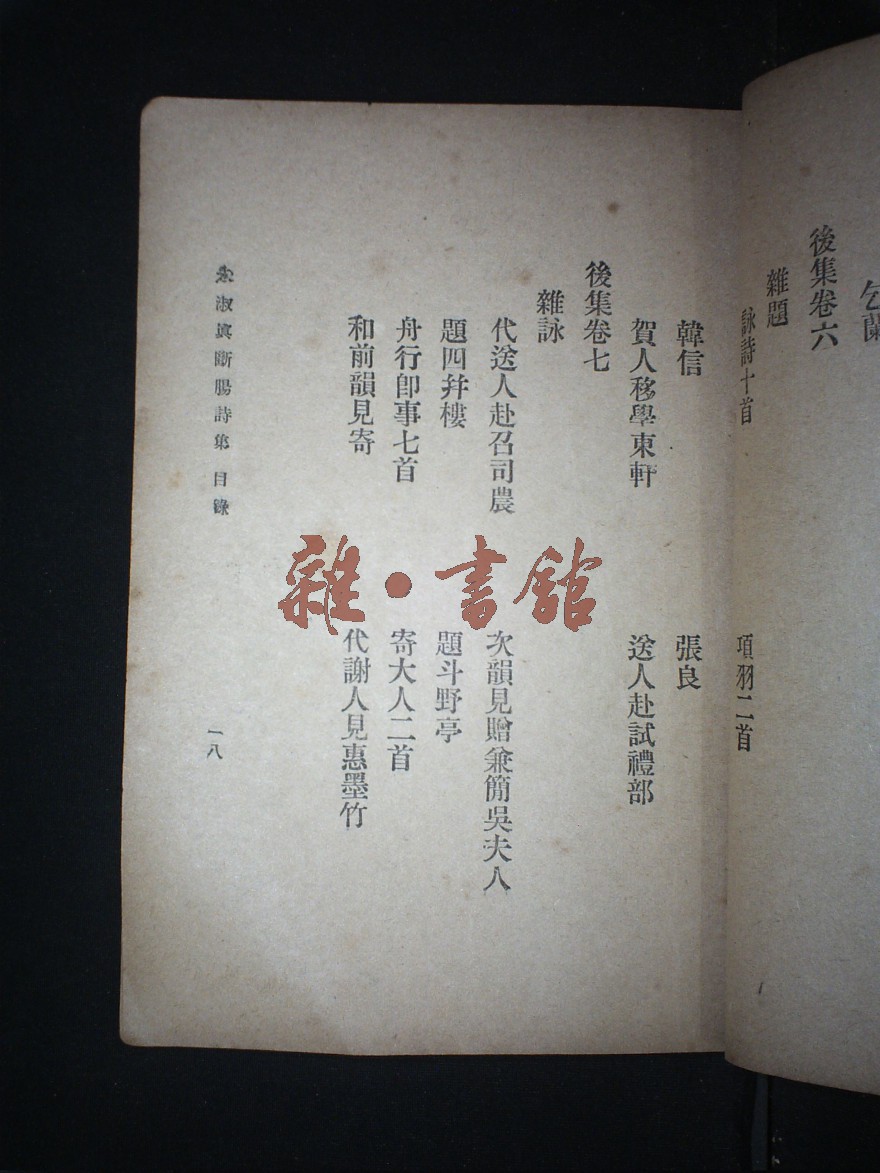 乞蘭
後集卷六
雜題
詠詩十首
項羽二首
韓信
張良
賀人移學東軒
送人赴試禮部
後集卷七
雜詠
代送人赴召司農
次韻見贈兼簡吳夫人
題四幷樓
題斗野亭
舟行卽事七首
寄大人二首
和前韻見寄
代謝人見惠墨竹
朱淑眞斷腸詩集 目錄
一八
雜·書館